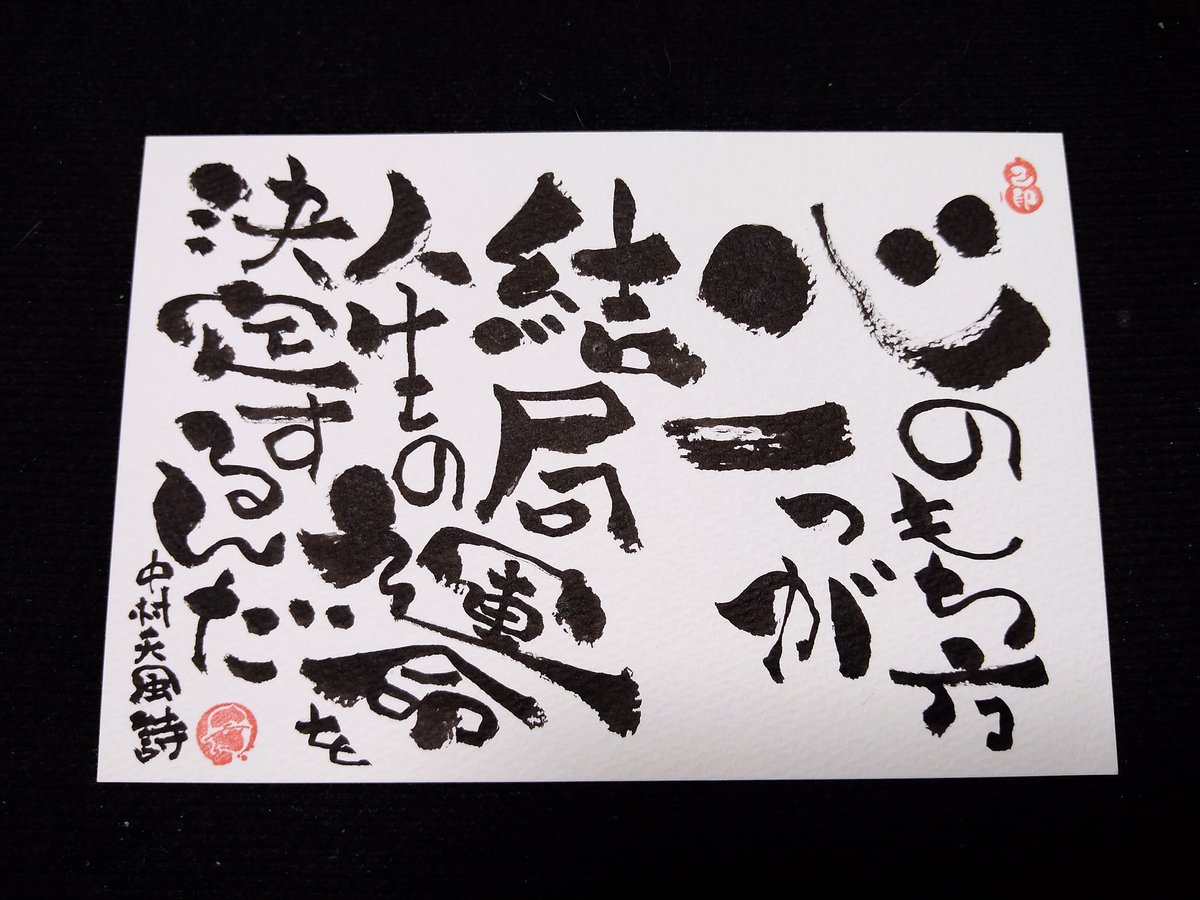 心のもち方
一つが
結局
人生の運命を
決定するんだ
中村天風詩